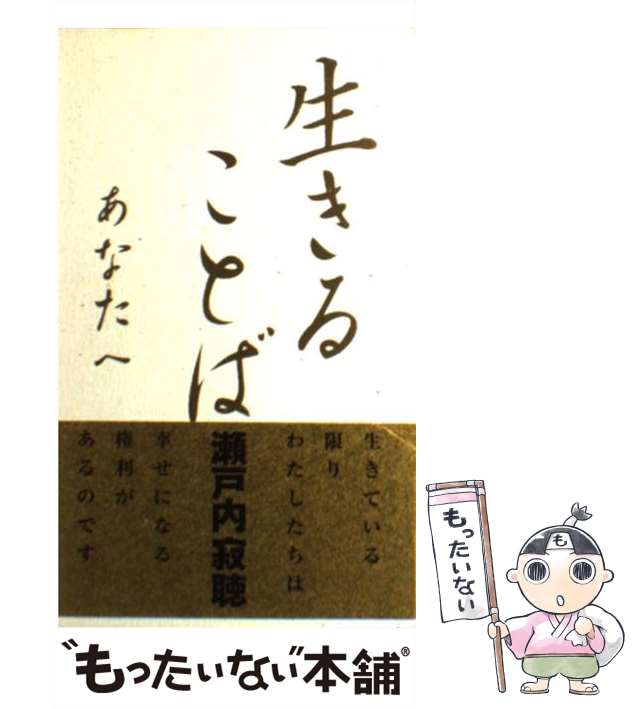 生きる
ことば
あなたへ
生きている
限り
わたしたちは
瀬戸内寂聴
幸せになる
権利が
あるのです
“もったいない”本舗®
もったいない
も